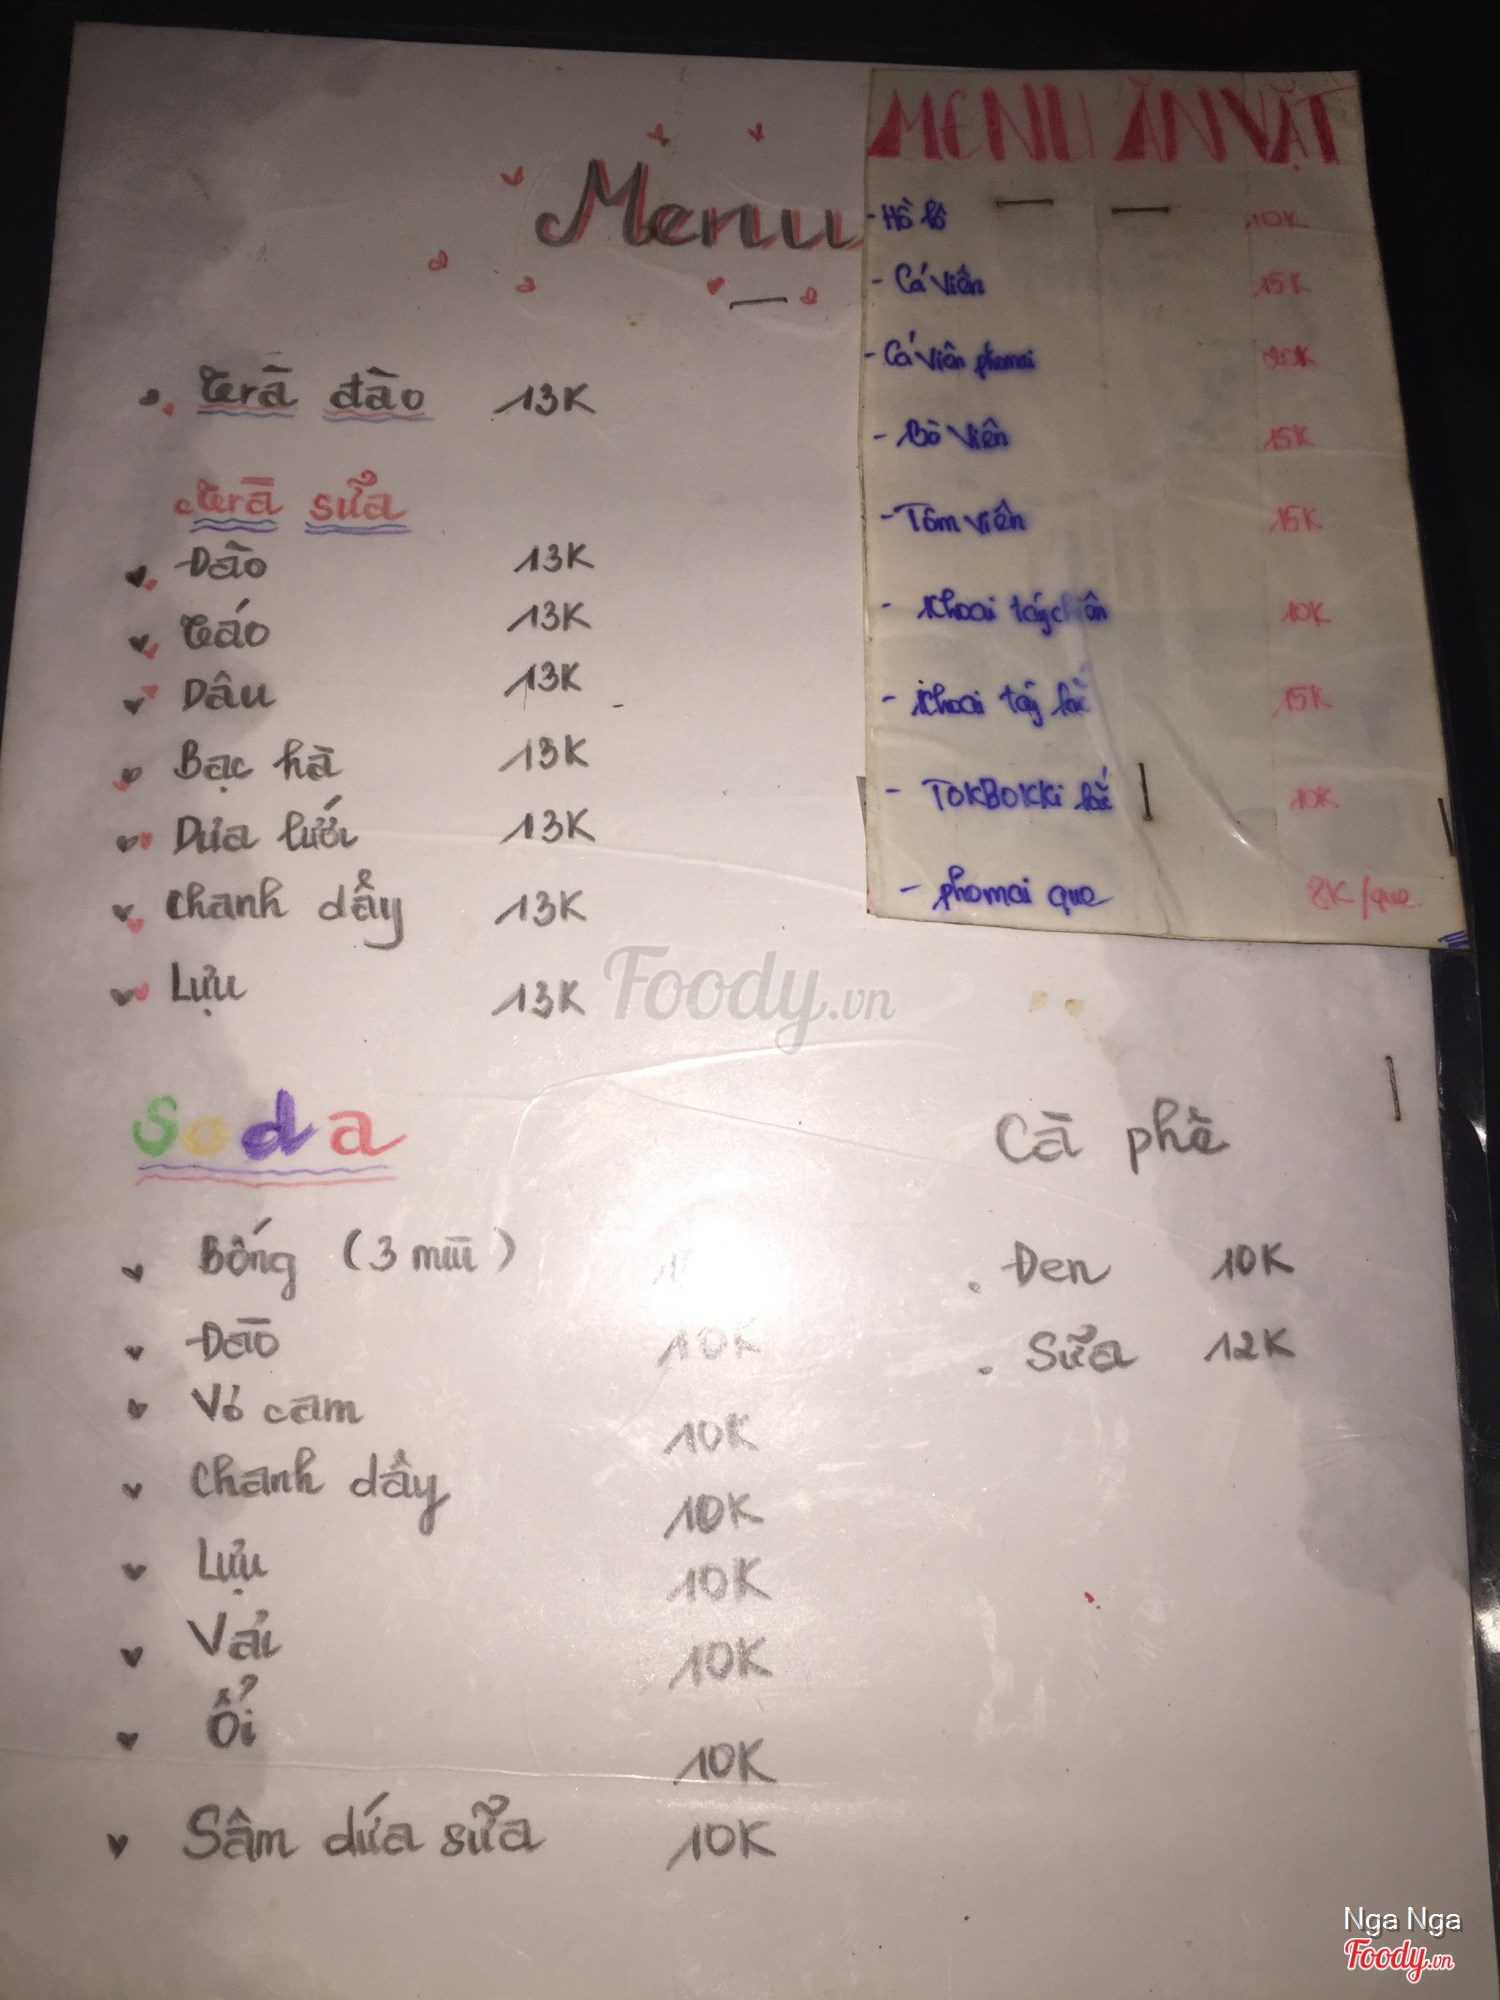 Menu
Trà đào 13K
Trà sữa
Đào 13K
Táo 13K
Dâu 13K
Bạc hà 13K
Dưa lưới 13K
Chanh dây 13K
Lựu 13K
Soda
Bống (3 mùi)
Đào 10K
Vỏ cam 10K
Chanh dây 10K
Lựu 10K
Vải 10K
Ổi 10K
Sâm dứa sữa 10K
MENU ĂN VẶT
- Hồ lô 10K
- Cá viên 15K
- Cá viên phomai 20K
- Bò viên 15K
- Tôm viên 15K
- Khoai tây chiên 10K
- Khoai tây lắc 15K
- TOKBOKKi lắc 10K
- phomai que 8K/que
Cà phê
. Đen 10K
. Sữa 12K
Foody.vn
Nga Nga
Foody.vn